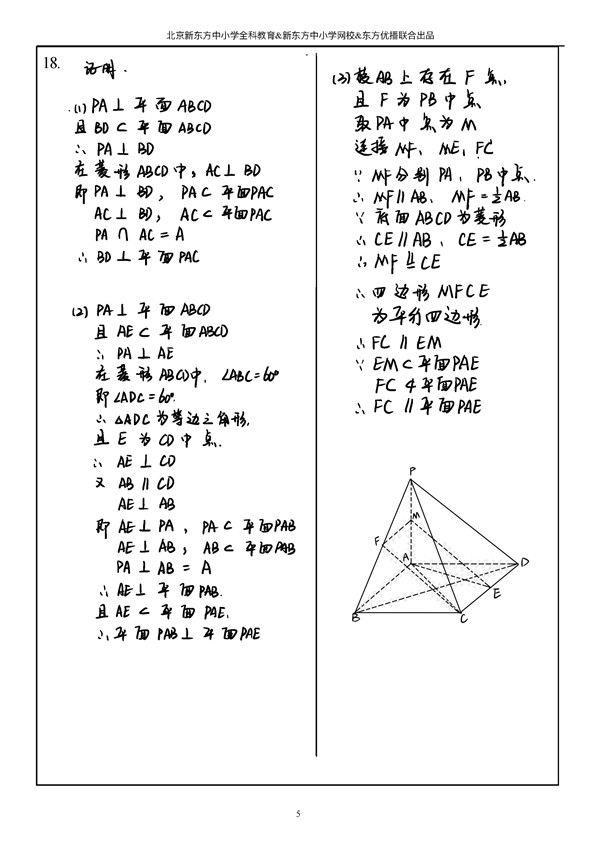 北京新东方中小学全科教育&新东方中小学网校&东方优播联合出品
18.
证明.
(1) PA⊥平面ABCD
且 BD⊂平面ABCD
∴ PA⊥BD
在菱形ABCD中,AC⊥BD
即 PA⊥BD, PA⊂平面PAC
AC⊥BD, AC⊂平面PAC
PA∩AC=A
∴ BD⊥平面PAC
(2) PA⊥平面ABCD
且 AE⊂平面ABCD
∴ PA⊥AE
在菱形ABCD中, ∠ABC=60°
即∠ADC=60°.
∴ △ADC为等边三角形.
且 E 为CD中点.
∴ AE⊥CD
又 AB∥CD
AE⊥AB
即 AE⊥PA, PA⊂平面PAB
AE⊥AB, AB⊂平面PAB
PA⊥AB=A
∴AE⊥平面PAB.
且AE⊂平面PAE.
∴平面PAB⊥平面PAE
(3) 棱AB上存在F点,
且F为PB中点
取PA中点为M
连接MF, ME, FC
∵ MF分别PA, PB中点.
∴ MF∥AB, MF=½AB.
∵ 底面ABCD为菱形
∴ CE∥AB, CE=½AB
∴ MF∥=CE
∴ 四边形MFCE
为平行四边形.
∴ FC∥EM
∵ EM⊂平面PAE
FC⊄平面PAE
∴ FC∥平面PAE
P
M
F
A
D
E
B
C
5